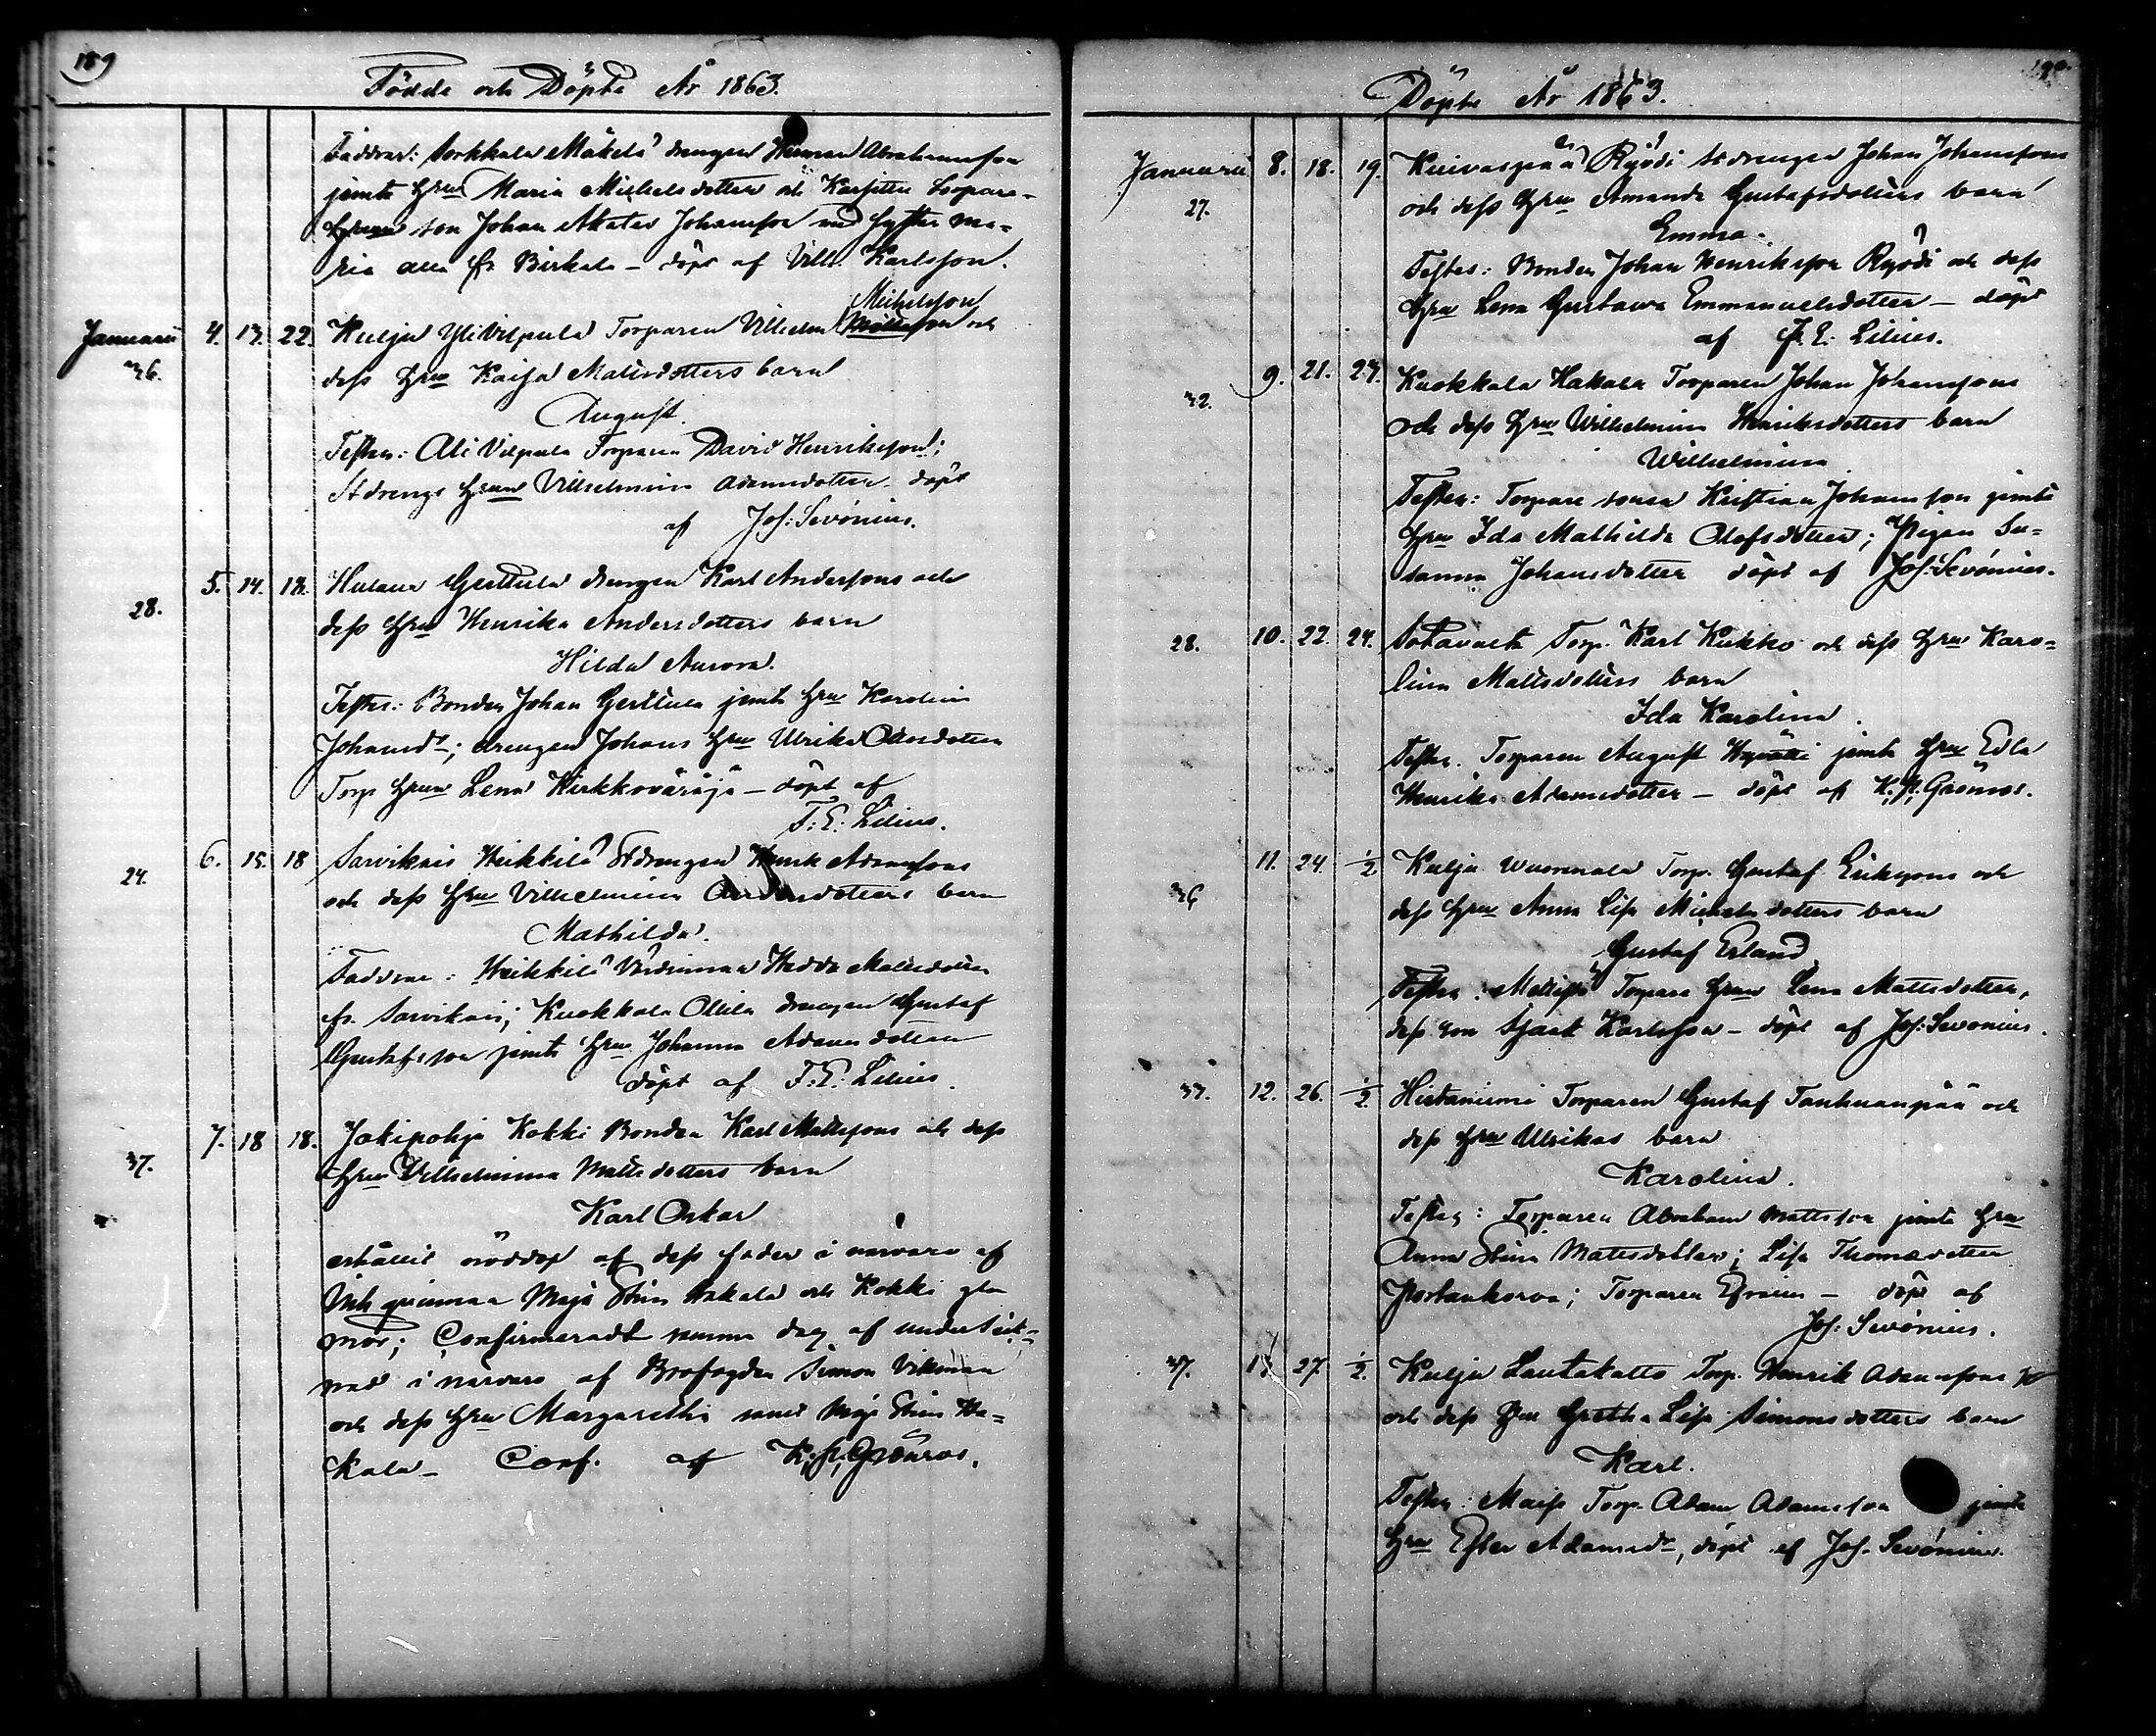 189
Födde och Döpte År 1863.
Faddrar: Sorkkala Mäkelä drengen Herman Abrahamsson
jemte Hru Maria Michelsdotter och Karjitie
son Johan Johansson med Syster Ma-
ria alla fr Birkala - döpt af Vilh. Karlsson.
Michelsson
Januarii 4. 13. 22. Kulju Yli Vilpula Torparen Vilhelm Mattsson och
36. dess Hru Kaisa Mattsdotters barn
August.
Testes: Ali Vilpula Torparen David Henriksson;
St drengs Hrun Vilhelmina Adamsdotter döpt
af Jos: Sevónius.
5. 14. 18. Hulaus Gerttula drengen Karl Anderssons och
28. dess Hru Henrika Andersdotters barn
Hilda Aurora.
Testes: Bonden Johan Gerttula jemte Hru Karolina
Johansdr; drengen Johans Hru Ulrika
Torp Hrun Lena Kirkkoväräjä - döpt af
F: E: Lilius.
6. 15. 18 Sarvikais Heikkilä St drengen Henrik Adamssons
24. och dess Hru Vilhelmina Andersdotters barn
Mathilda.
Faddrar: Heikkilä Värdinnan Hedda Mattsdotter
fr. Sarvikais; Kuokkala Ollila drengen Gustaf
Gustafsson jemte Hru Johanna Adamsdotter
döpt af F: E: Lilius.
7. 18 18. Jokipohja Kokki Bonden Karl Mattssons och dess
37. Hru Vilhelmina Mattsdotters barn
Karl Oskar
erhållit nöddop af dess fader i närvaro af
Inh qvinnan Maja Stina Hakala och Kokki gla
mor; Confirmeradt samma dag af underteck-
nad i närvaro af Brofogden Simon Vikman
och dess Hru Margaretha samt Maja Stina Ha-
kala - Conf. af K: H: Grönros.
190.
Döpte År 1863.
Januarii 8. 18. 19. Kuivaspää Ryödi St drengen Johan Johanssons
27. och dess Hru Amanda Gustafsdotters barn
Emma.
Testes: Bonden Johan Henriksson Ryödi och dess
Hru Lena Gustawa Emmanuelsdotter - döpt
af F. E. Lilius.
9. 21. 24. Kuokkala Hakala Torparen Johan Johanssons
32. och dess Hru Wilhelmina Henriksdotters barn
Wilhelmina
Testes: Torpare sonen Kristian Johansson jemte
Hru Ida Mathilda Olofsdotter; Pigan Su-
sanna Johansdotter döpt af Jos: Sevónius.
28. 10. 22. 24. Sotavalta Torp. Karl Kukko och dess Hru Karo-
lina Mattsdotters barn
Ida Karolina.
Testes. Torparen August jemte Hru Edla
Henrika Adamsdotter - döpt af K. H. Grönros.
11. 24. 1/2 Kulju Wuorenala Torp. Gustaf Erikssons och
36 dess Hru Anna Lisa Michelsdotters barn
Gustaf Erland
Testes: Torpare Hrun Lena Mattsdotter,
dess son Isaak Karlsson - döpt af Jos: Sevonius.
37. 12. 26. 1/2. Hietaniemi Torparen Gustaf Tanhuanpää och
dess Hru Ulrikas barn
Karolina.
Testes: Torparen Abraham Mattsson jemte Hru
Anna Stina Mattsdotter; Lisa Thomasdotter
Portankorva; Torparen Efraim - döpt af
Jos: Sevónius.
37. 13 27. 1/2. Kulju Lautakatto Torp. Henrik Adamssons
och dess Hru Gretha Lisa Simonsdotters barn
Karl.
Testes: Maisi Torp. Adam Adamsson jemte
Hru Ester Adamsdr, döpt af Jos. Sevónius.